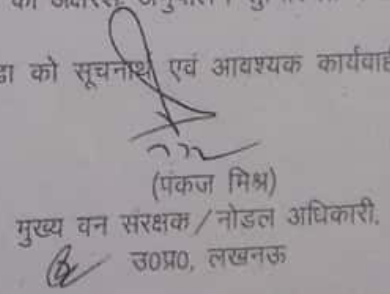 का अक्षरशः अनुपालन
डा को सूचनार्थ एवं आवश्यक कार्यवाह
(पंकज मिश्र)
मुख्य वन संरक्षक / नोडल अधिकारी,
उ०प्र०, लखनऊ